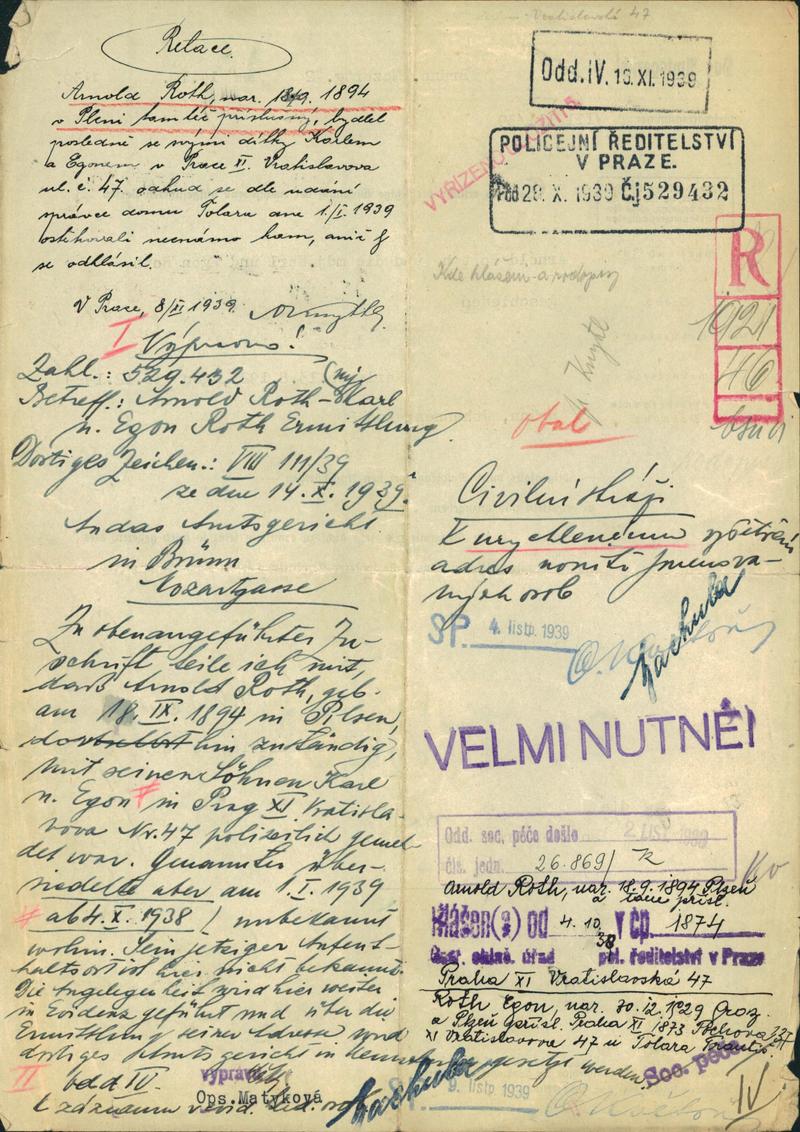 Relace.
Arnold Roth, nar. 18/9. 1894
v Plzni tamtéž příslušný, bydlel
posledně se svými dítky Karlem
a Egonem v Praze XI. Vratislavova
ul. č. 47. odkud se dle udání
správce domu Tolara dne 1/I. 1939
odstěhovali neznámo kam, aniž
se odhlásil.
V Praze, 8/XI 1939.
I Výpravno!
Zahl.: 529.432
Betreff.: Arnold Roth - Karl
u. Egon Roth Ermittlung
Dortiges Zeichen.: VIII 111/39
ze dne 14. X. 1939.
An das Amtsgericht
in Brünn
Mozartgasse
Zu obenangeführter Zu-
schrift teile ich mit,
dass Arnold Roth, geb.
am 18. IX. 1894 in Pilsen,
dorthin zuständig,
mit seinen Söhnen Karl
u. Egon # in Prag XI Vratisla-
vova Nr. 47 polizeilich gemel-
det war. Genannter über-
siedelte aber am 1. I. 1939
# ab 4. X. 1938 / unbekannt
wohin. Sein jetziger Aufent-
haltsort ist hier nicht bekannt.
Die Angelegenheit wird hier weiter
in Evidenz geführt und über die
Ermittlung seiner Adresse wird
dortiges Amtsgericht in Kenntnis
gesetzt werden.
II odd IV.
k záznamu
vypravila
Ops. Matyková
Vratislavská 47
Odd. IV. 16. XI. 1939
VYŘÍZENO
POLICEJNÍ ŘEDITELSTVÍ
V PRAZE.
Pod 28. X. 1939 Čj 529432
R
1921
46
Kde hlášen a rodopisy
obal
Civilní stráži
k urychlenému vyšetření
adres
jmenova-
ných osob
SP. 4. listp. 1939
Zachuba
VELMI NUTNÉ!
Odd. soc. péče došlo 2 LIS 1939
čís. jedn. 26.869/
Arnold Roth, nar. 18.9.1894 Plzeň
a tamt. přísl.
Hlášen(a) od 4. 10. 38 v čp. 1874
Ústř. ohláš. úřad pol. ředitelství v Praze
Praha XI Vratislavská 47
Roth Egon, nar. 30.12.1929
a Plzeň
Praha XI 1873
XI Vratislavova 47 u Tolara
Soc. péče
Zachuba
SP. 9. listp 1939
IV